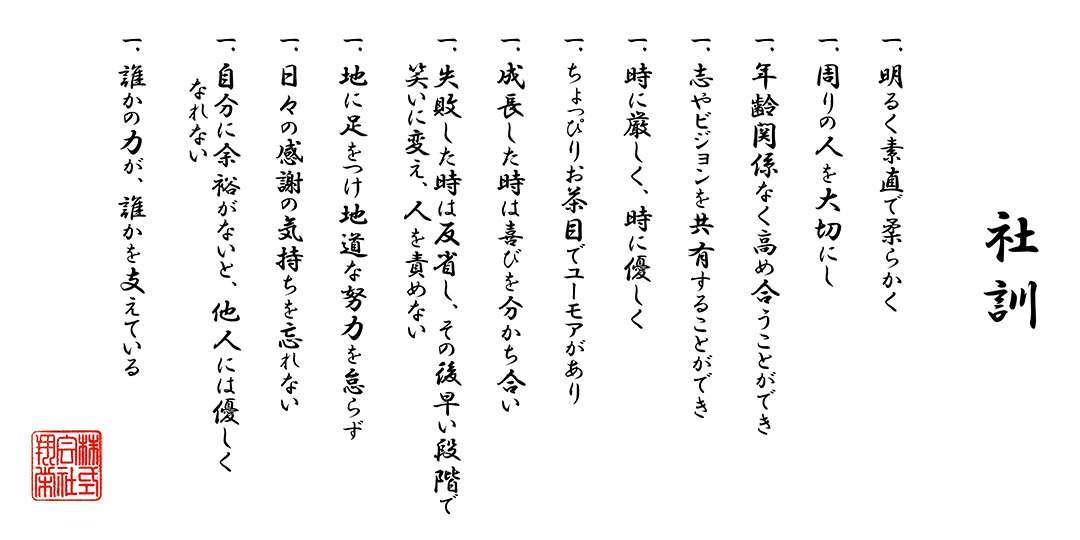 社訓
一、明るく素直で柔らかく
一、周りの人を大切にし
一、年齢関係なく高め合うことができ
一、志やビジョンを共有することができ
一、時に厳しく、時に優しく
一、ちょっぴりお茶目でユーモアがあり
一、成長した時は喜びを分かち合い
一、失敗した時は反省し、その後早い段階で
笑いに変え、人を責めない
一、地に足をつけ地道な努力を怠らず
一、日々の感謝の気持ちを忘れない
一、自分に余裕がないと、他人には優しく
なれない
一、誰かの力が、誰かを支えている
株式
会社
翔栄